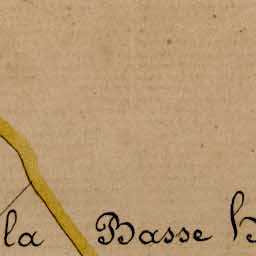 la Basse